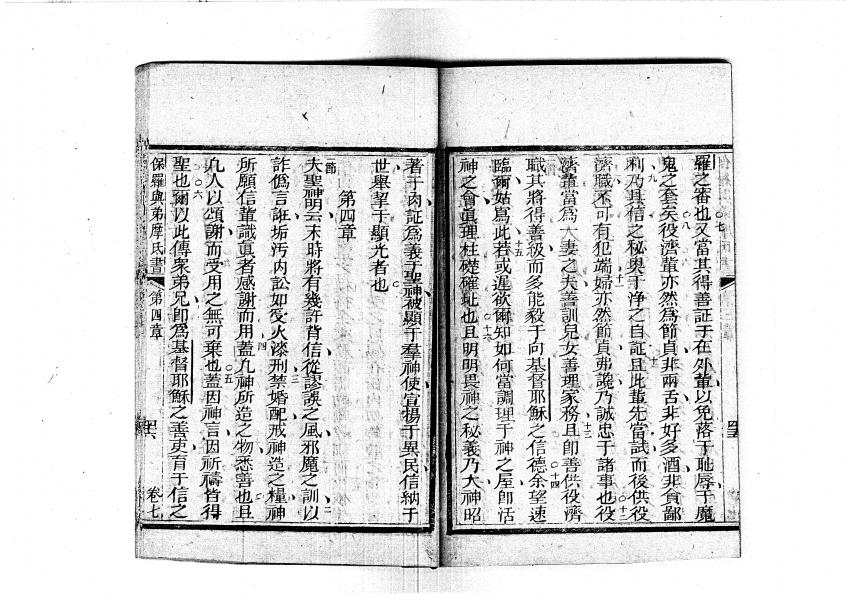 羅之審也又當其得善証于在外輩以免落于耻辱于魔
鬼之套矣役濟輩亦然為節貞非兩舌非好多酒非貪鄙
利乃具信之秘奥于净之自証且此輩先當試而後供役
濟職不可有犯端婦亦然節貞弗讒乃誠忠于諸事也役
濟輩當為一妻之夫善訓兒女善理家務且即善供役濟
職其將得善級而多能毅于向基督耶穌之信德余望速
臨爾姑寫此若或遲欲爾知如何當調理于神之屋即活
神之會真理柱礎確址也且明明畏神之秘義乃大神昭
著于肉証為義于聖神被顯于羣神使宣揚于異民信納于
世舉擧于顯光者也
第四章
夫聖神明云末時將有幾許背信從謬誤之風邪魔之訓以
詐偽言誑垢汚内訟如受火漆刑禁婚配戒神造之糧神
所願信輩識真者感謝而用蓋凡神所造之物悉善也且
凡人以頌謝而受用之無可棄也蓋因神言因祈禱皆得
聖也爾以此傳衆弟兄即為基督耶穌之善吏育于信之
保羅與弟摩氏書 第四章 卷七